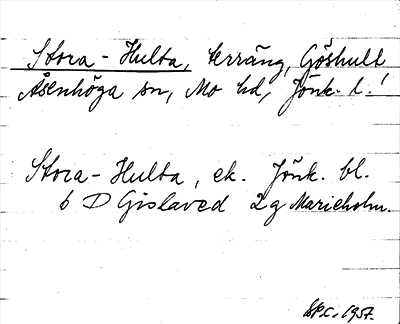 Stora-Hulta, terräng, Göshult
Åsenhöga sn, Mo hd, Jönk. l.
Stora-Hulta, ek. Jönk. bl.
6 D Gislaved 2 g Marieholm.
1957.